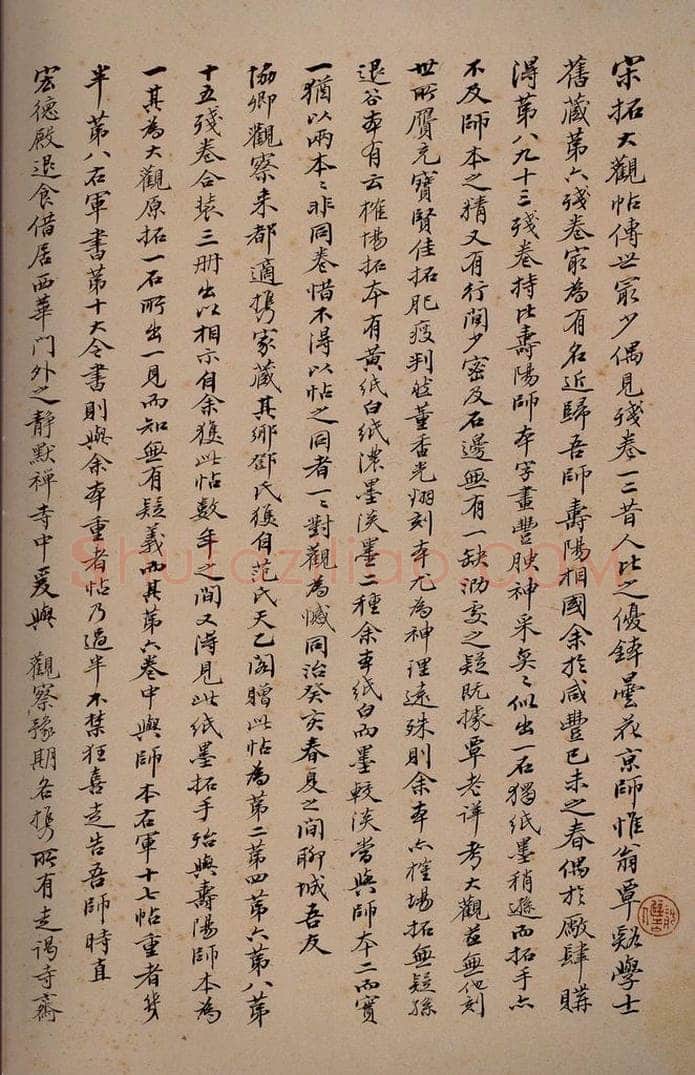 宋拓大觀帖傳世最少偶見殘卷一二昔人比之優鉢曇花京師惟翁覃谿學士
舊藏第六殘卷最為有名近歸吾師壽陽相國余於咸豐己未之春偶於廠肆購
得第八九十三殘卷持比壽陽師本字畫豐腴神采奕〻似出一石獨紙墨稍遜而拓手亦
不及師本之精又有行間少密及石邊無有一缺泐處之疑既據覃老詳考大觀並無他刻
世所贗充寶賢佳拓肥瘦判然董香光翻刻本尤為神理遠殊則余本亦榷場拓無疑孫
退谷本有云榷場拓本有黃紙白紙濃墨淡墨二種余本紙白而墨較淡當與師本二而實
一猶以兩本〻非同卷惜不得以帖之同者一一對觀為憾同治癸亥春夏之間聊城吾友
協卿觀察來都適攜家藏其鄉鄧氏獲自范氏天乙閣贈此帖為第二第四第六第八第
十五殘卷合裝三冊出以相示自余獲此帖數年之間又得見此紙墨拓手殆與壽陽師本為
一其為大觀原拓一石所出一見而知無有疑義而其第六卷中與師本右軍十七帖重者幾
半第八右軍書第十大令書則與余本重者帖乃過半不禁狂喜走告吾師時直
宏德殿退食借居西華門外之靜默禪寺中爰與觀察豫期各攜所有走謁寺齋
Shuraziliao.COM